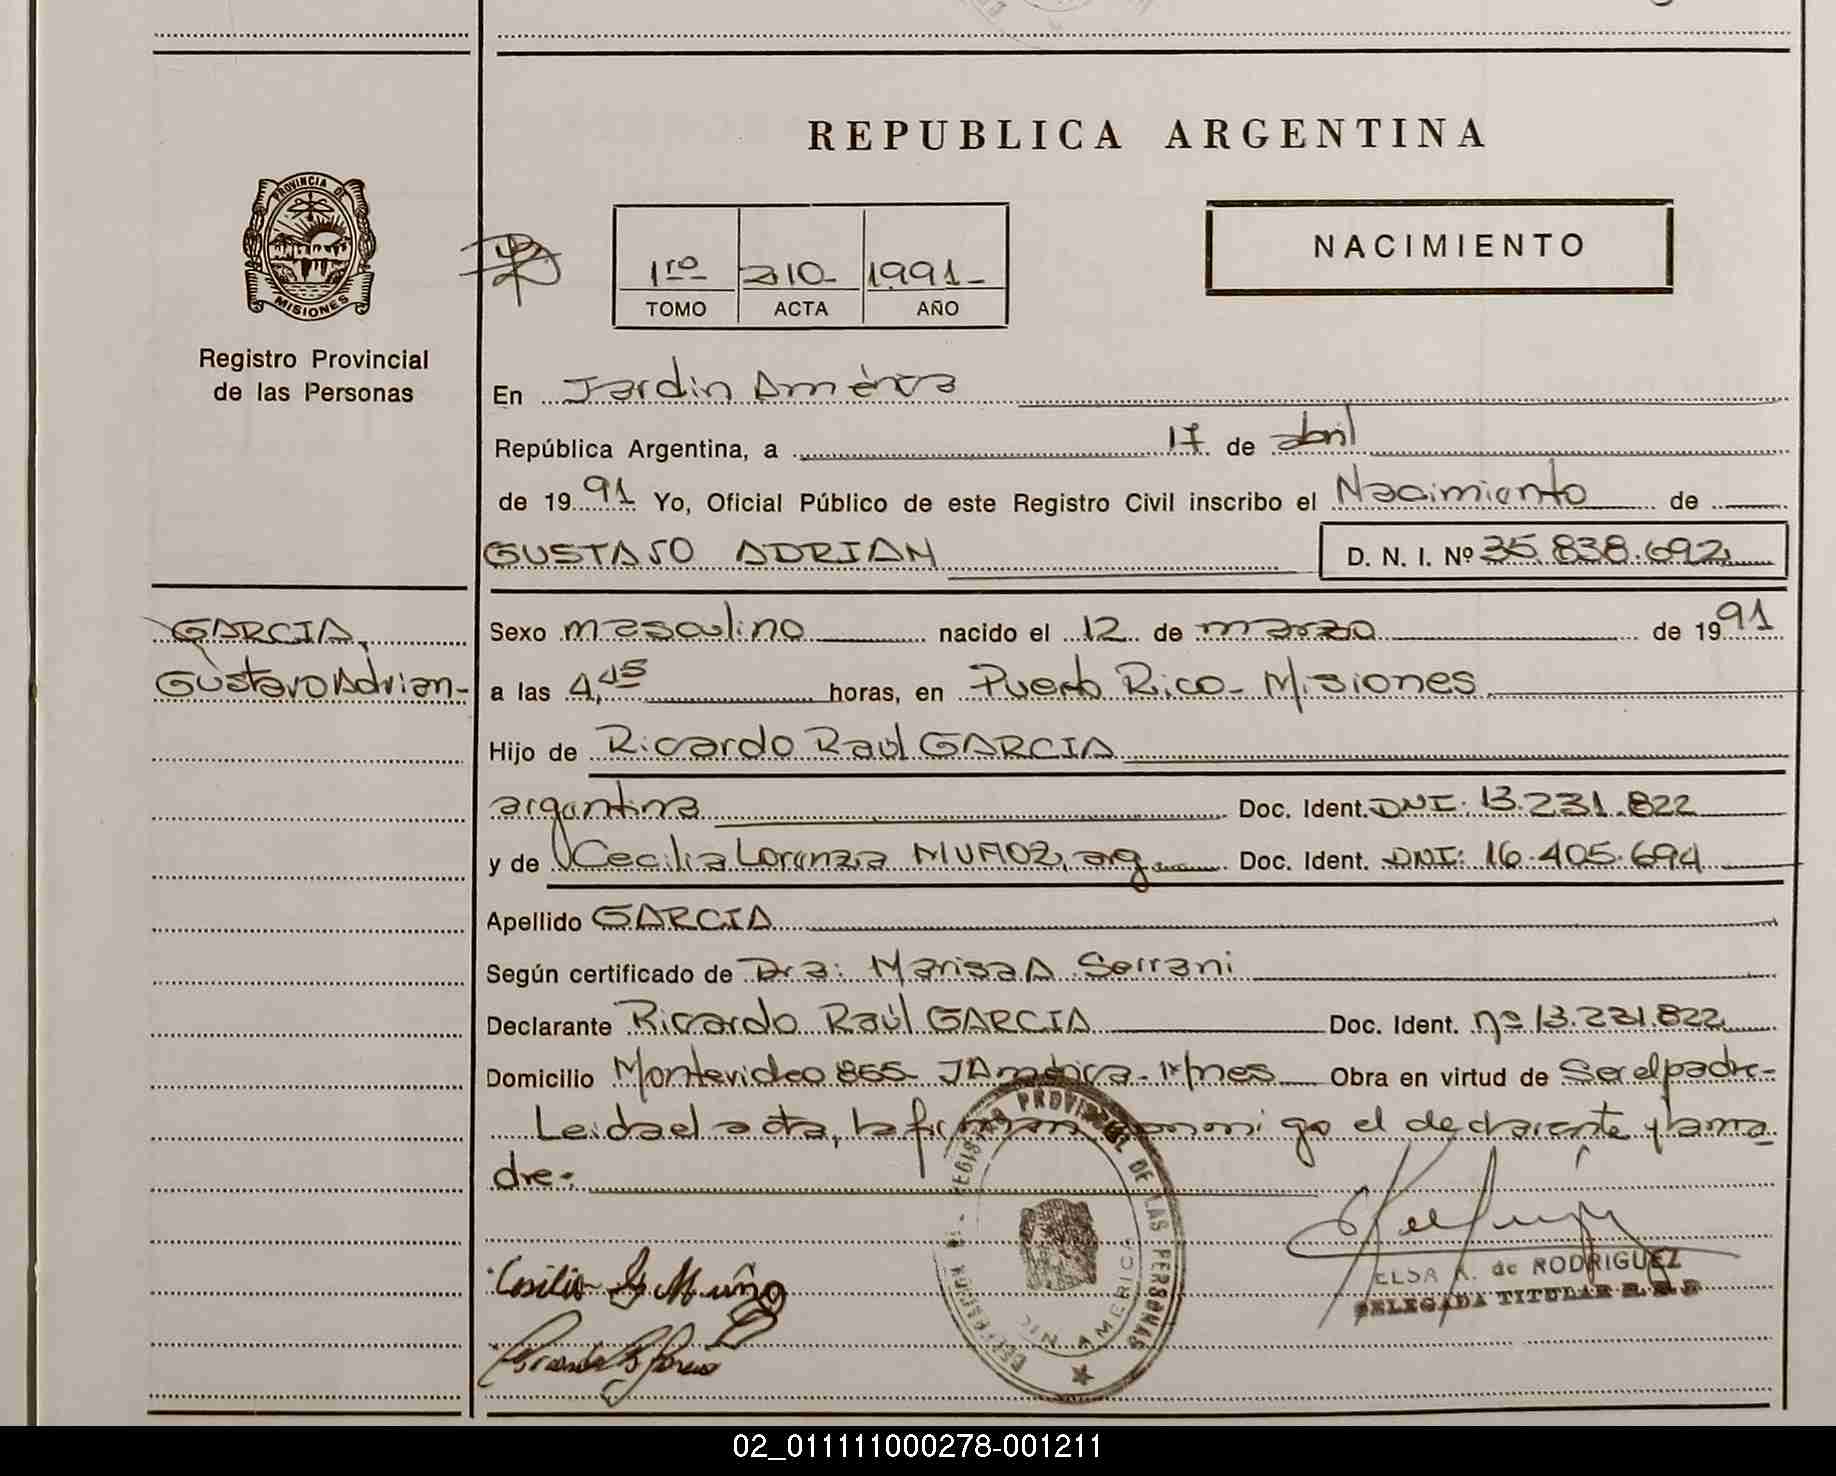 REPUBLICA ARGENTINA
PROVINCIA DE
MISIONES
Registro Provincial
de las Personas
1ro 210 1991
TOMO ACTA AÑO
NACIMIENTO
En Jardin América
República Argentina, a 17 de abril
de 1991 Yo, Oficial Público de este Registro Civil inscribo el Nacimiento de
GUSTAVO ADRIAN D. N. I. Nº 35.838.692
GARCIA,
Gustavo Adrian-
Sexo masculino nacido el 12 de marzo de 1991
a las 4,45 horas, en Puerto Rico- Misiones
Hijo de Ricardo Raúl GARCIA
argentina Doc. Ident. DNI: 13.231.822
y de Cecilia Lorenza MUÑOZ, arg. Doc. Ident. DNI: 16.405.694
Apellido GARCIA
Según certificado de Dra: Marisa A Serrani
Declarante Ricardo Raúl GARCIA Doc. Ident. nº 13.231.822
Domicilio Montevideo 865- J América- Mnes Obra en virtud de Ser el padre-
Leida el acta, la firman conmigo el declarante y la ma
dre-
REGISTRO PROVINCIAL DE LAS PERSONAS
AMERICA
ELSA R. de RODRIGUEZ
DELEGADA TITULAR R.P.P
02_011111000278-001211